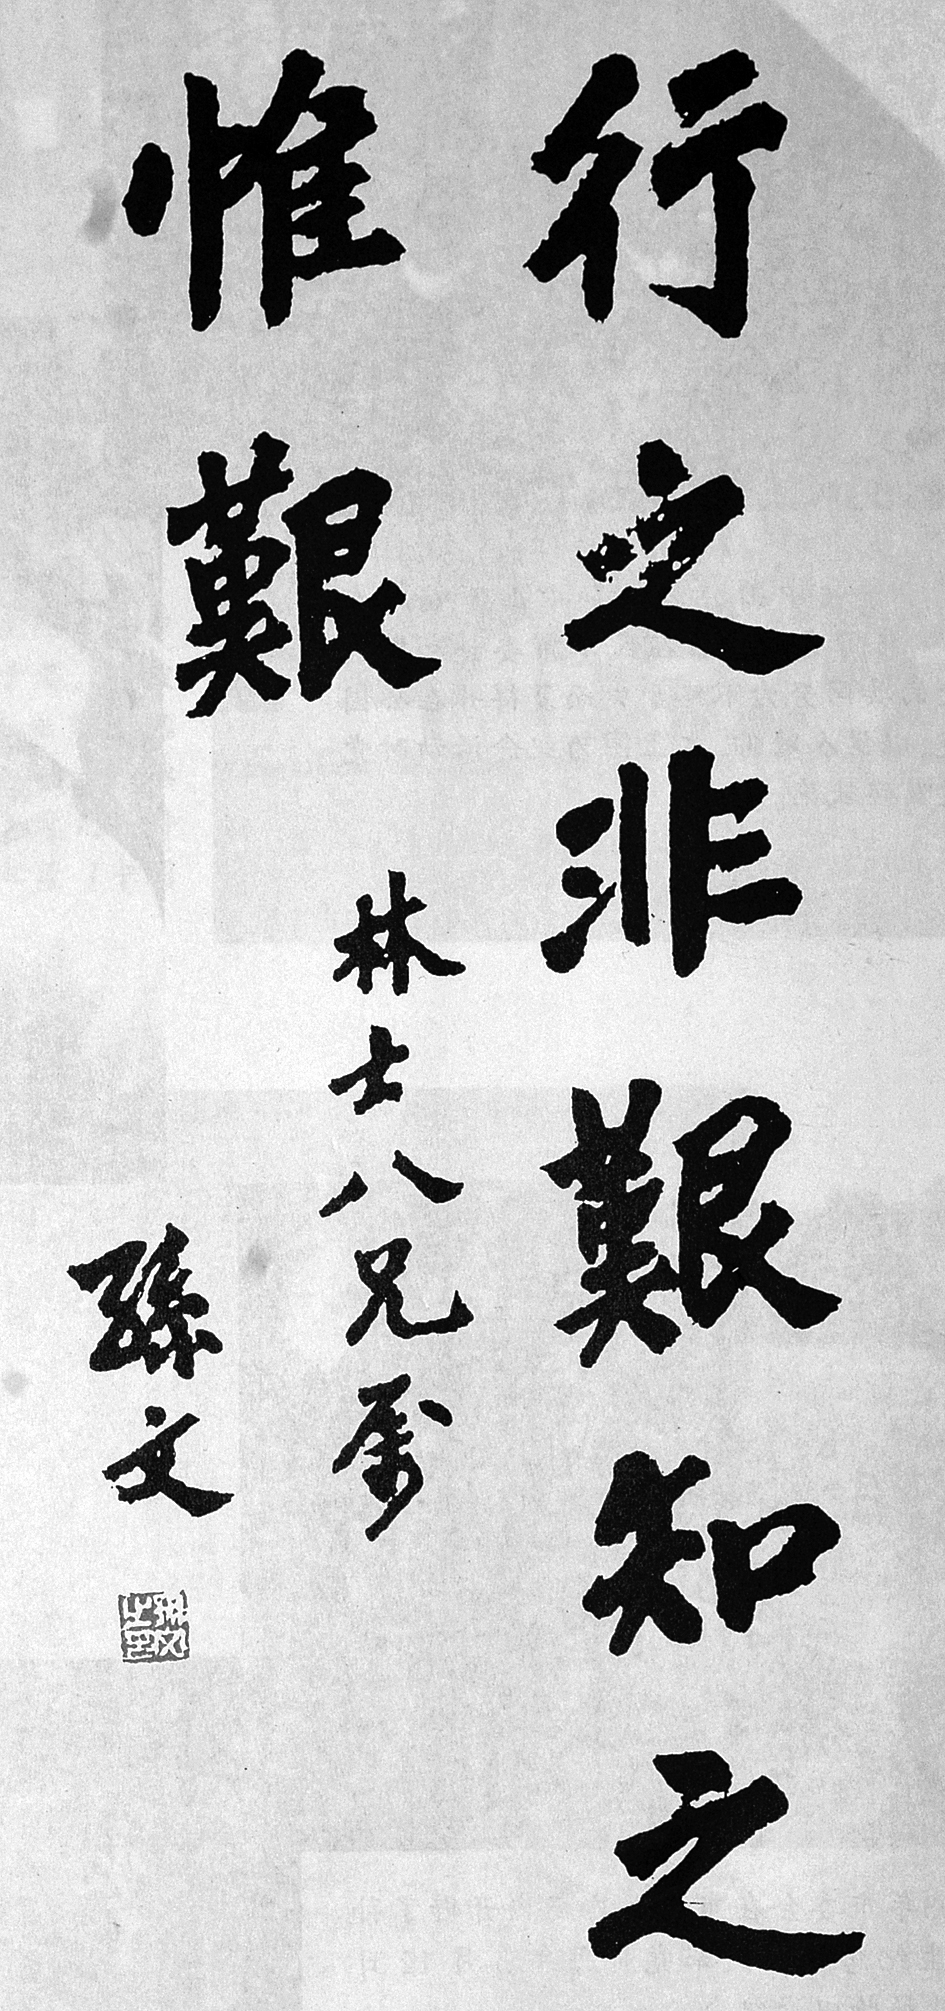 行之非艱知之
惟艱
林士八兄属
孫文
孫文之印